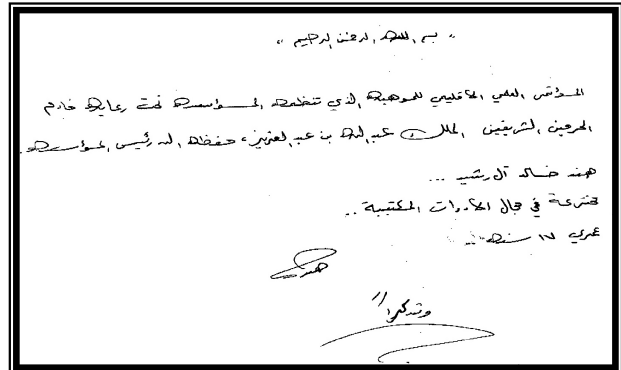 " بسم الله الرحمن الرحيم "
المؤتمر العلمي الإقليمي للموهبة الذي تنظمه المؤسسة تحت رعاية خادم
الحرمين الشريفين الملك عبدالله بن عبدالعزيز، حفظه الله رئيس المؤسسة.
هند خالد آل رشيد ...
مخترعة في مجال الأدوات المكتبية ..
عمري ١٧ سنة
هند
وشكراً //